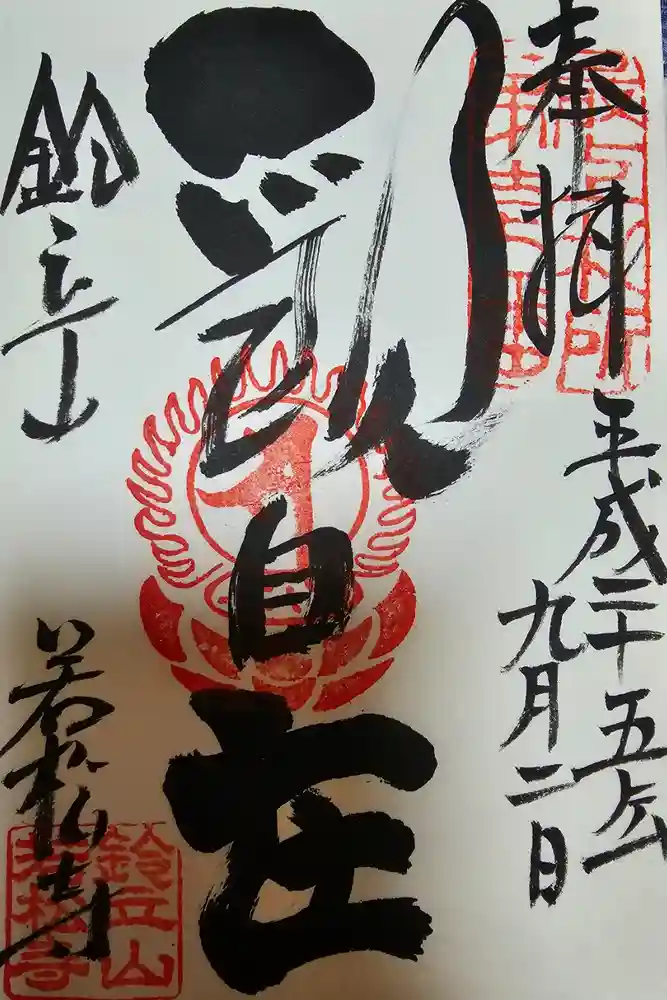 奉拝
平成二十五年
九月二日
自在
鈴立山
若松寺
鈴立山
若松寺